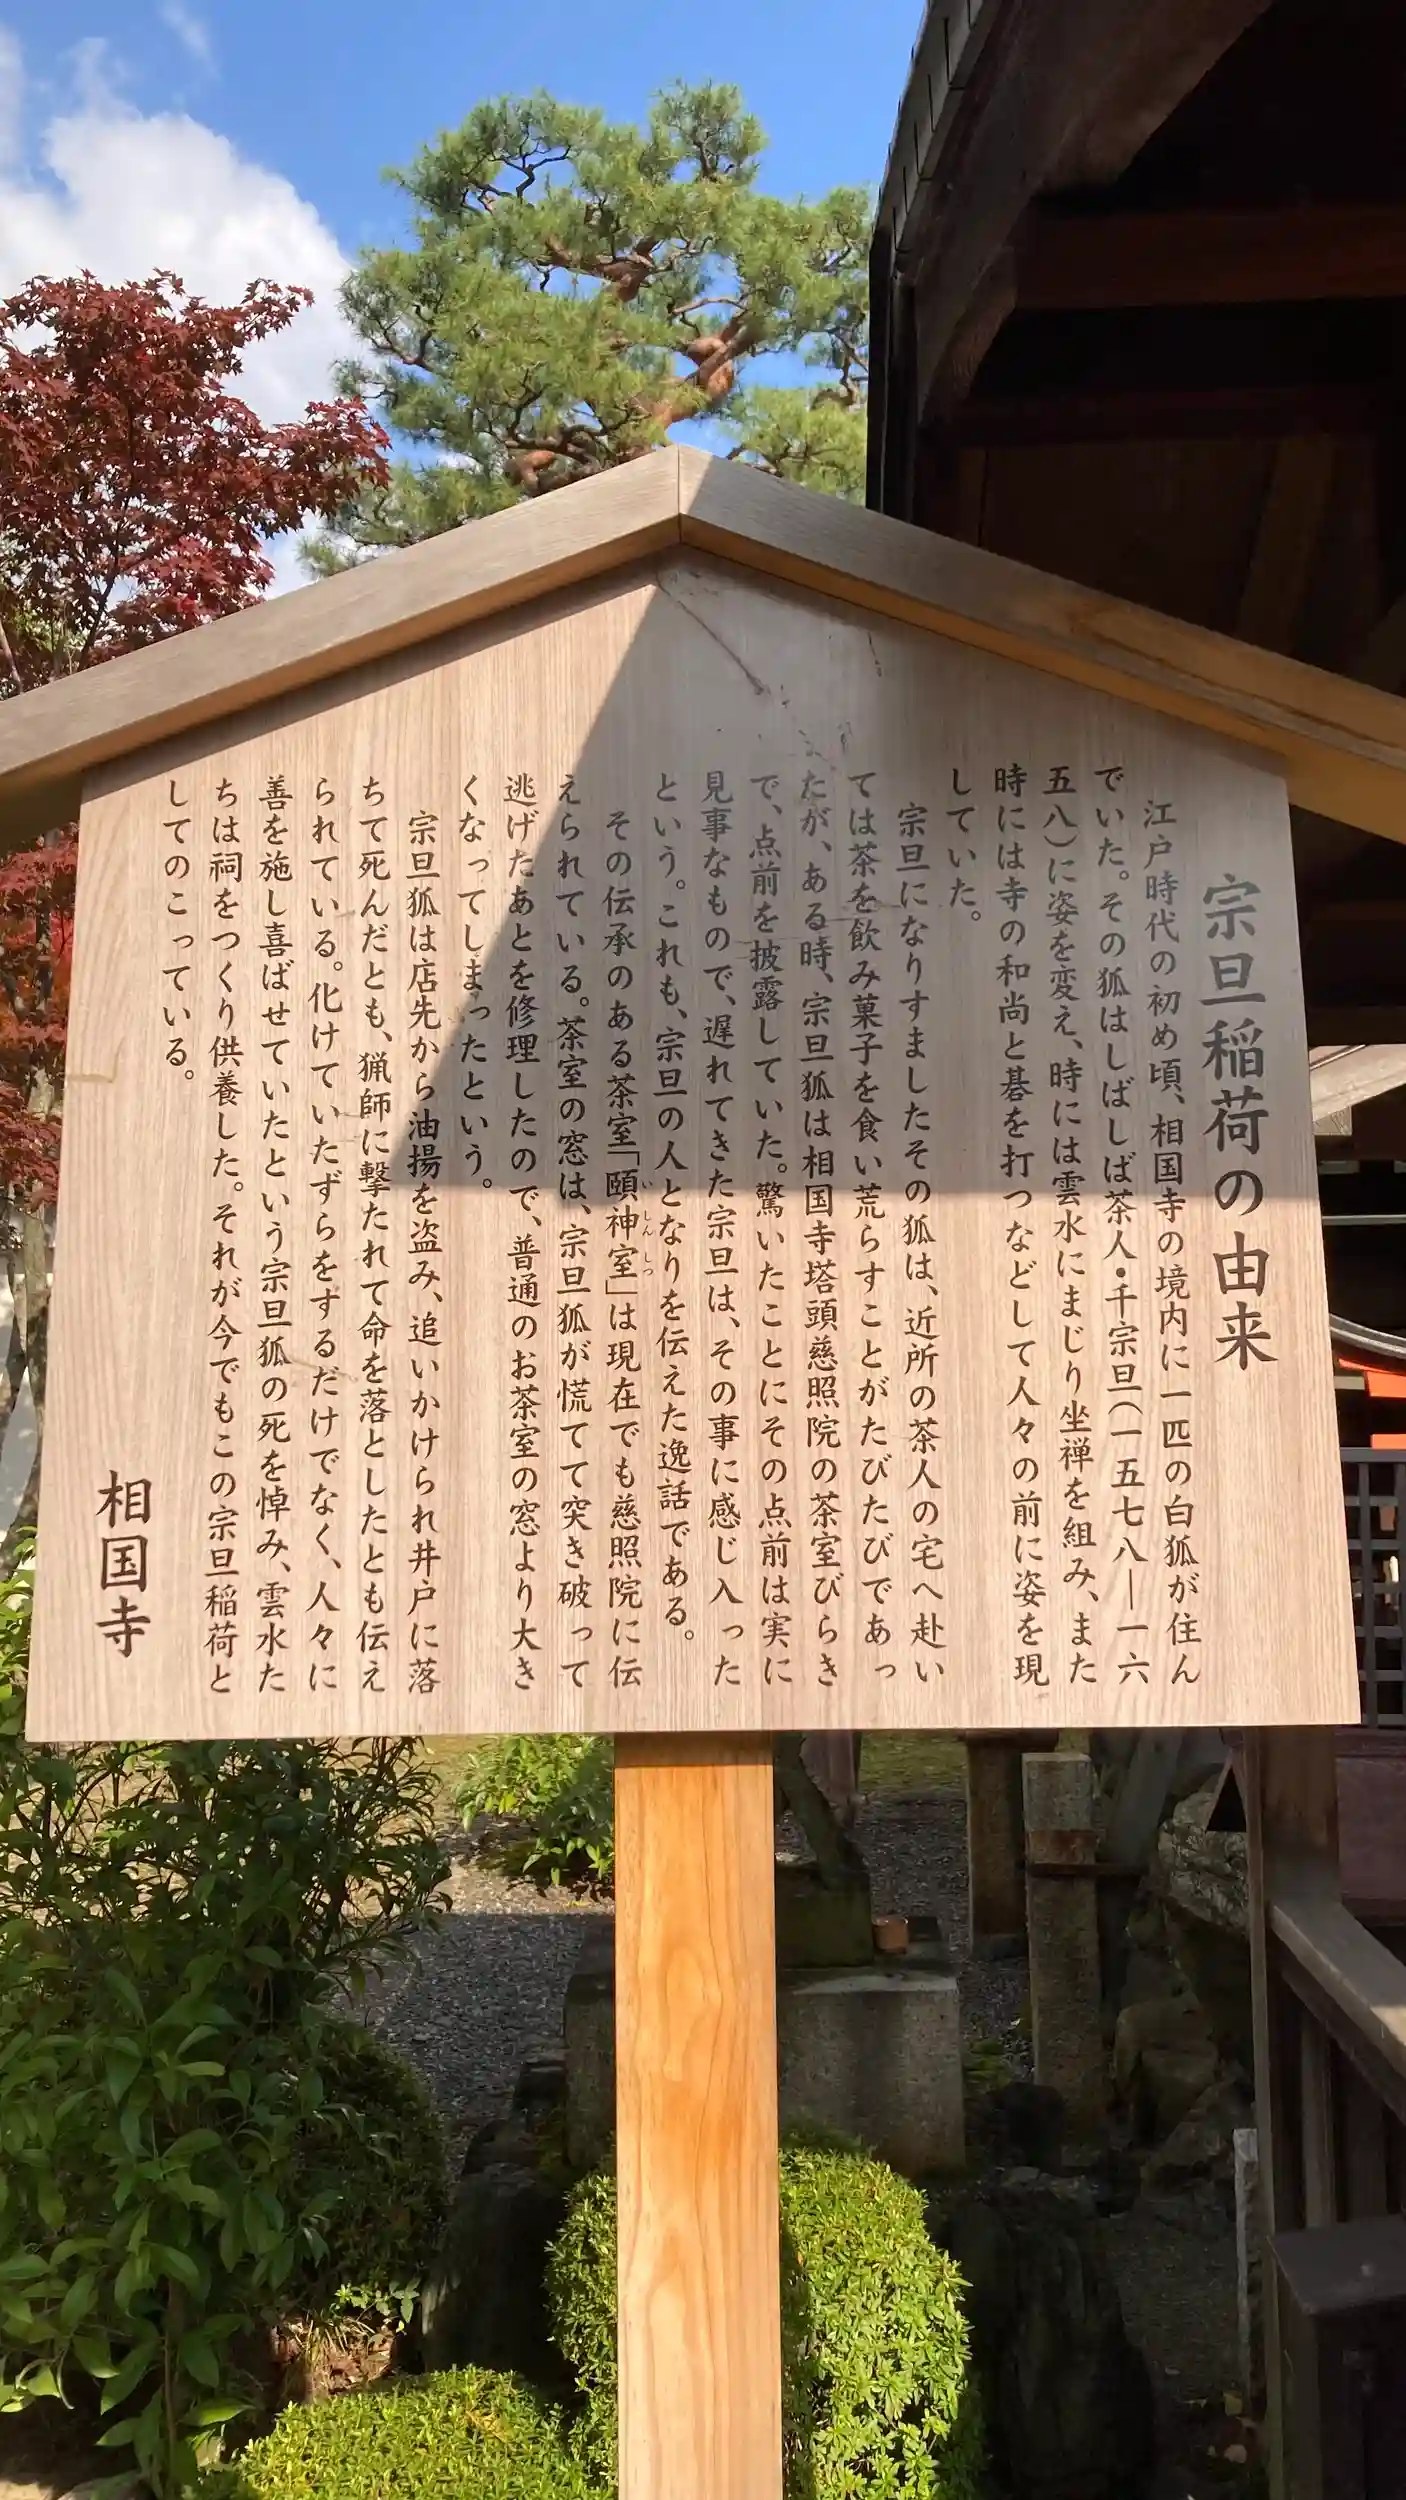 宗旦稲荷の由来
江戸時代の初め頃、相国寺の境内に一匹の白狐が住ん
でいた。その狐はしばしば茶人・千宗旦(一五七八―一六
五八)に姿を変え、時には雲水にまじり坐禅を組み、また
時には寺の和尚と碁を打つなどして人々の前に姿を現
していた。
宗旦になりすましたその狐は、近所の茶人の宅へ赴い
ては茶を飲み菓子を食い荒らすことがたびたびであっ
たが、ある時、宗旦狐は相国寺塔頭慈照院の茶室びらき
で、点前を披露していた。驚いたことにその点前は実に
見事なもので、遅れてきた宗旦は、その事に感じ入った
という。これも、宗旦の人となりを伝えた逸話である。
その伝承のある茶室「頤神室」は現在でも慈照院に伝
いしんしつ
えられている。茶室の窓は、宗旦狐が慌てて突き破って
逃げたあとを修理したので、普通のお茶室の窓より大き
くなってしまったという。
宗旦狐は店先から油揚を盗み、追いかけられ井戸に落
ちて死んだとも、猟師に撃たれて命を落としたとも伝え
られている。化けていたずらをするだけでなく、人々に
善を施し喜ばせていたという宗旦狐の死を悼み、雲水た
ちは祠をつくり供養した。それが今でもこの宗旦稲荷と
してのこっている。
相国寺